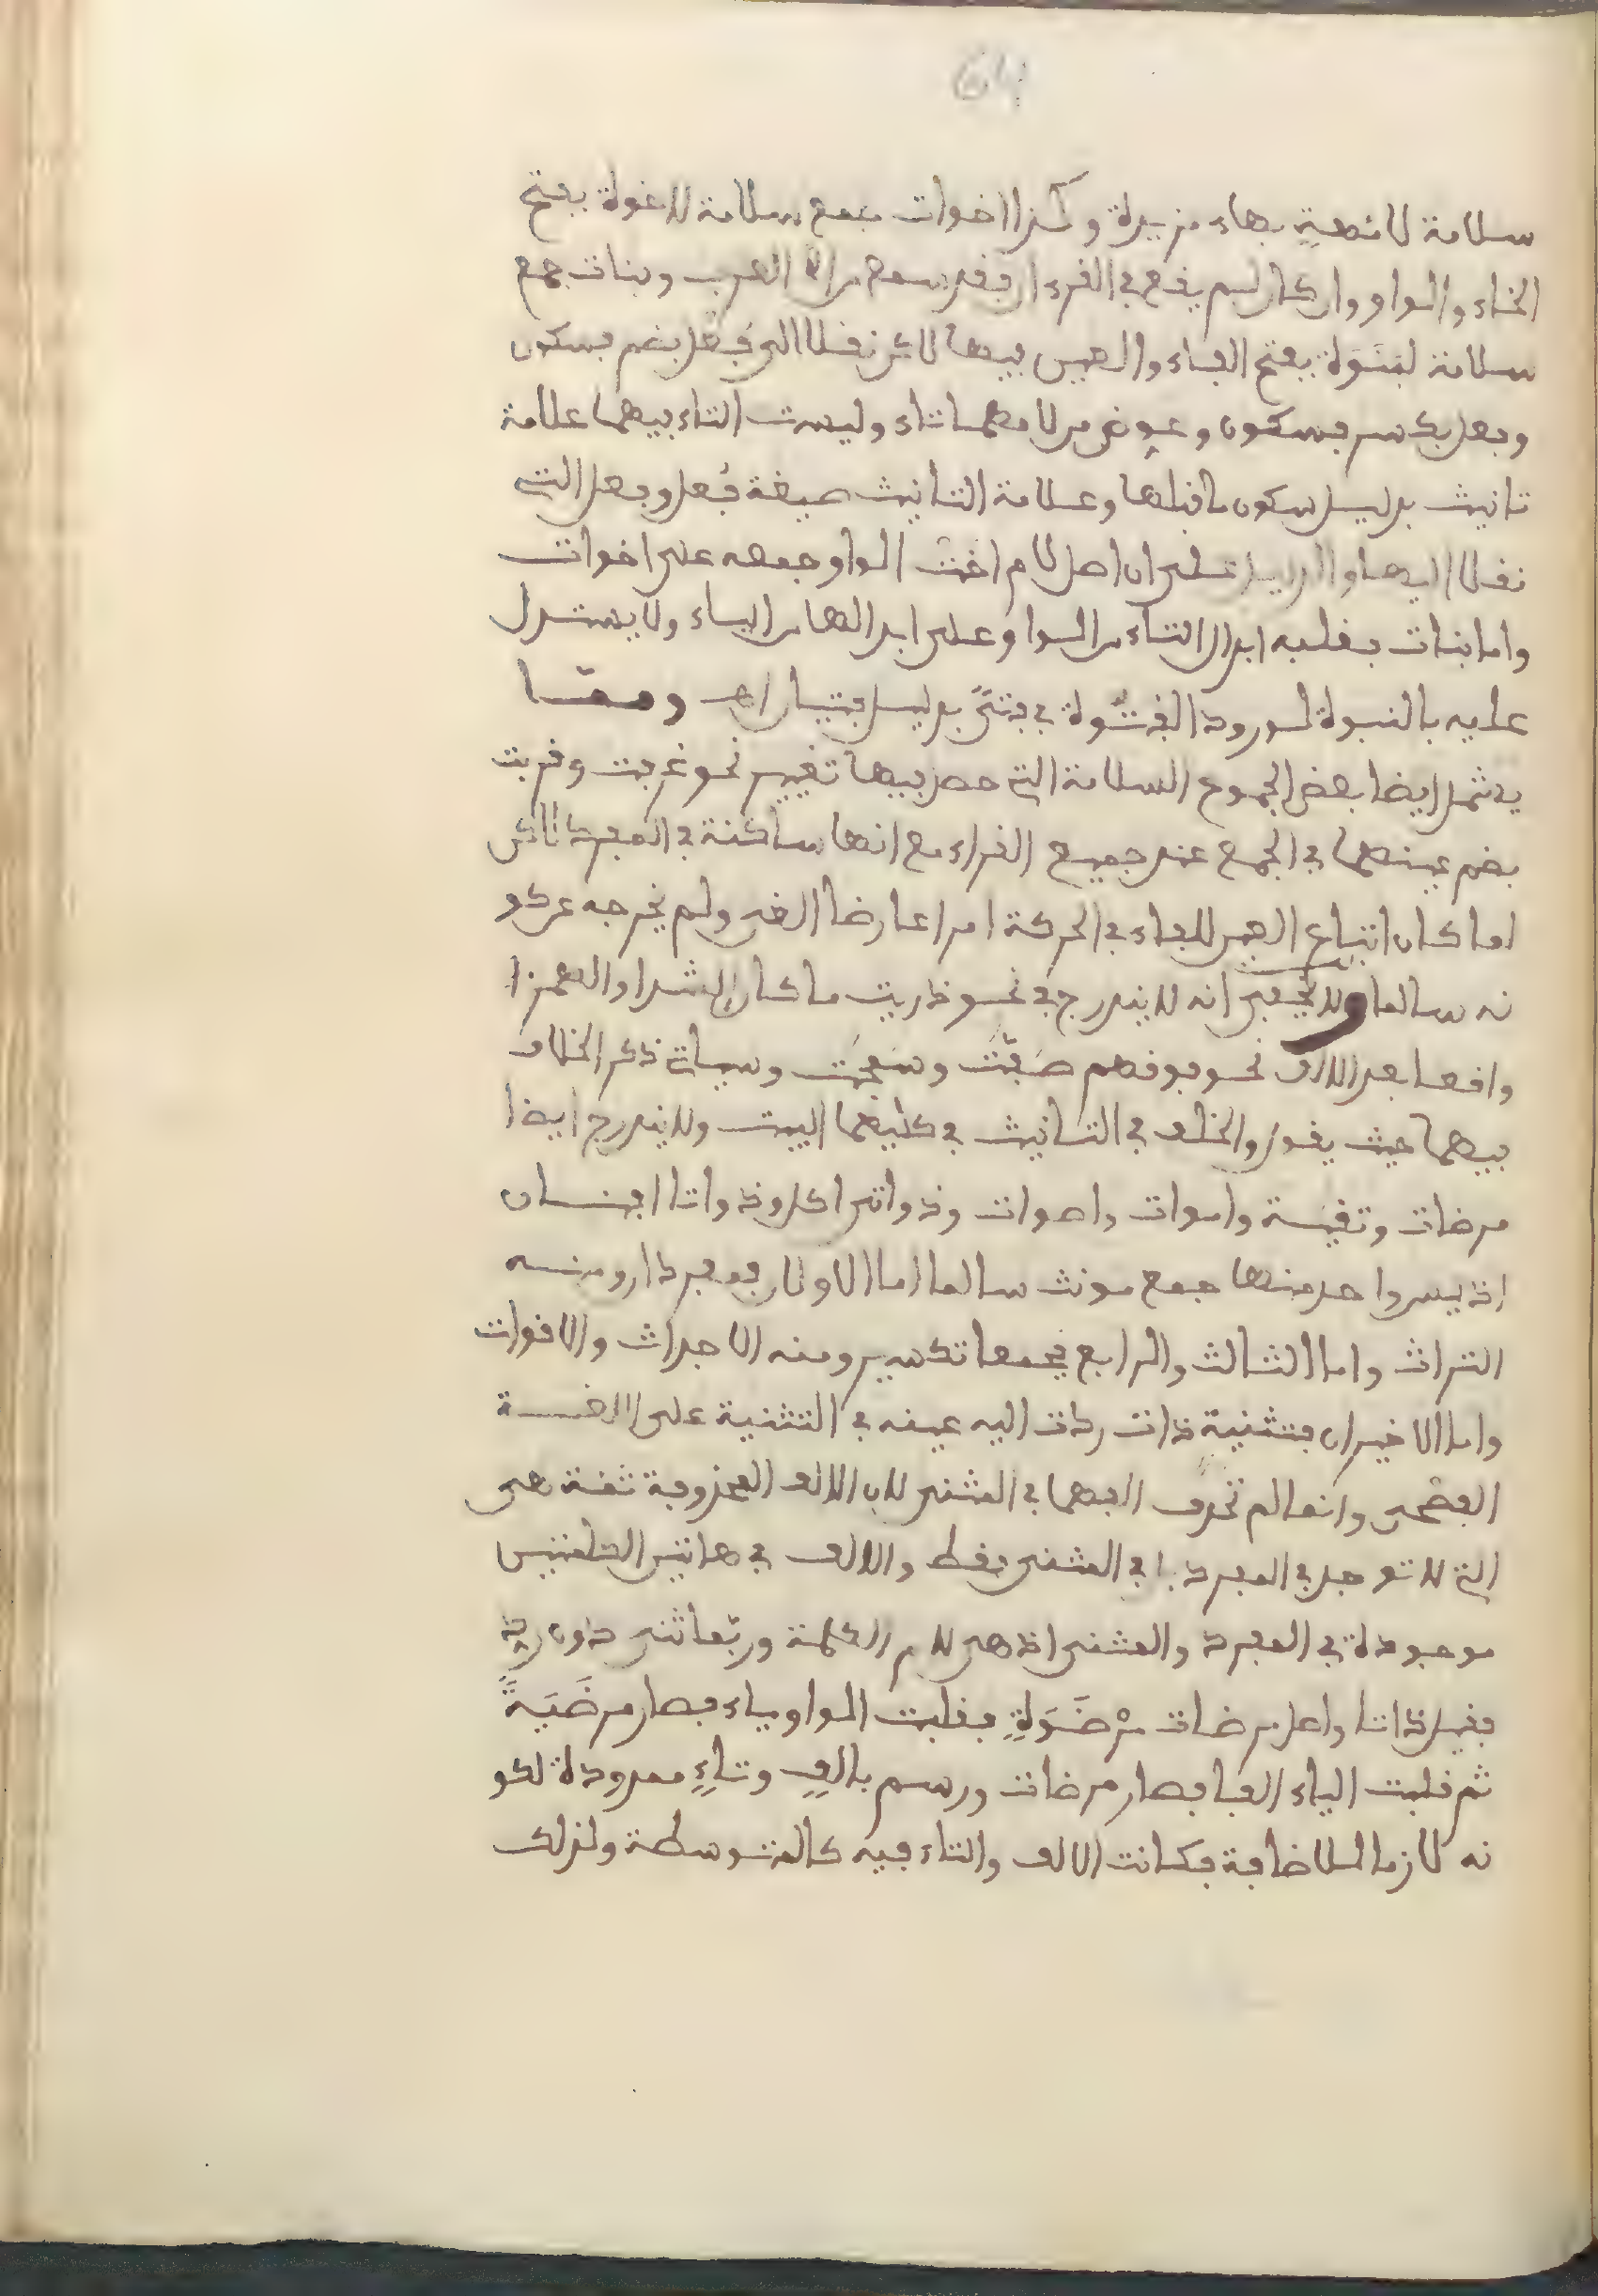 64
سلامة لامهة بهاء مزيدة وكذا اخوات جمع سلامة لاخوة بفتح
الخاء والواو وان كان لم يقع في القرءان فقد سمع من العرب وبنات جمع
سلامة لبنوة بفتح الفاء والعين فيهما لاكن نقلا الى فعل بضم فسكون
وفعل بكسر فسكون وعوض من لامهما تاء وليست التاء فيهما علامة
تانيث بدليل سكون ما قبلها وعلامة التانيث صيغة فعل وفعل التي
نقلا اليها والدليل على ان اصل لام اخت الواو جمعه على اخوات
واما بنات فغلبه ابدال التاء من الواو على ابدالها من الياء ولا يستدل
عليه بالنبوة لورود الفتوة في فتى بدليل فتيان اهـ ومما
يدخل ايضا بعض الجموع السلامة التي حصل فيها تغيير نحو غرفت وقربت
بضم عينهما في الجمع عند جميع القراء مع انها ساكنة في المفرد لاكن
لما كان اتباع العين للفاء في الحركة امرا عارضا الغي ولم يخرجه عن كو
نه سالما ولا يخفى انه لا يندرج في نحو ذريت ما كان المشدد او الهمز ا
واقعا بعد الالف نحو فوقهم صفت وسىحت وسيات ذكر الخلاف
فيهما حيث يقول والخلف في التانيث في كليهما البيت ولا يندرج ايضا
مرضات وتقية واموات واصوات وذواتى اكل وذواتا افنان
اذ ليس واحد منها جمع مونث سالما اما الاولان فمفردان ومنه
التراث واما الثالث والرابع فجمعا تكسير ومنه الاجداث والاقوات
واما الاخيران فتثنية ذات ردت اليه عينه في التثنية على اللغة
الفصحى وانما لم تحذف الفهما في المثنى لان الالف المحذوفة ثمة هي
التي لا توجد في المفرد بل في المثنى فقط والالف في هاتين الكلمتين
موجودة في المفرد والمثنى اذ هي لام الكلمة وربما ثنى دون رد
فقيل ذاتا واصل مرضات مرضوة فقلبت الواو ياء فصار مرضية
ثم قلبت الياء الفا فصار مرضات ورسم بالف وتاء ممدودة لكو
نه لازما للاضافة فكانت الالف والتاء فيه كالمتوسطة ولذلك